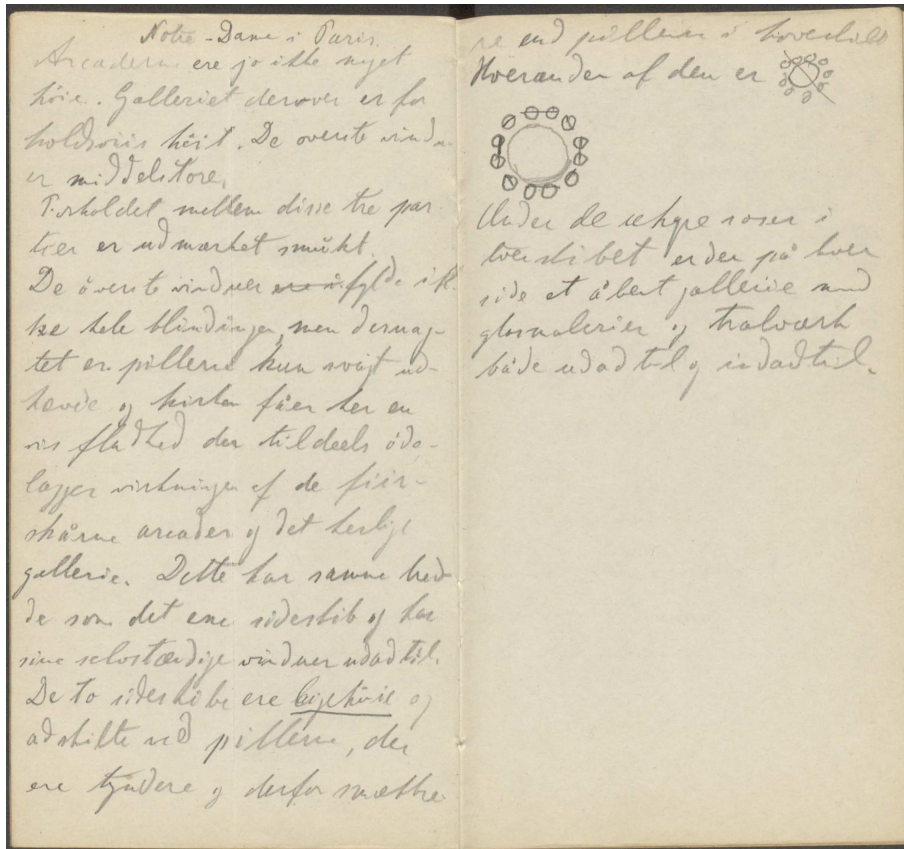 Notre-Dame i Paris.
Arcaderne ere jo ikke noget
höie. Galleriet derover er for
holdsviis höit. De överste vindu-
er middelstore.
Forholdet mellem disse tre par
tier er udmærket smükt.
De överste vinduer fylde ik
ke hele blindingen, men desuag-
tet er pillerne kun svagt ud-
hævede og kirken fåer her en
vis fladhed der tildeels öde-
lægger virkningen af de fiir-
skårne arcader og det herlige
gallerie. Dette har samme bred-
de som det ene sideskib og har
sine selvstændige vinduer udadtil.
De to sideskibe ere ligehöie og
adskilte ved pillerne, der
ere tyndere og derfor smækre
re end pillerne i hovedskib
Hveranden af dem er
Under de uhyre roser i
tverskibet er der på hver
side et åbent gallerie med
glasmalerier og tralværk
både udadtil og indadtil.